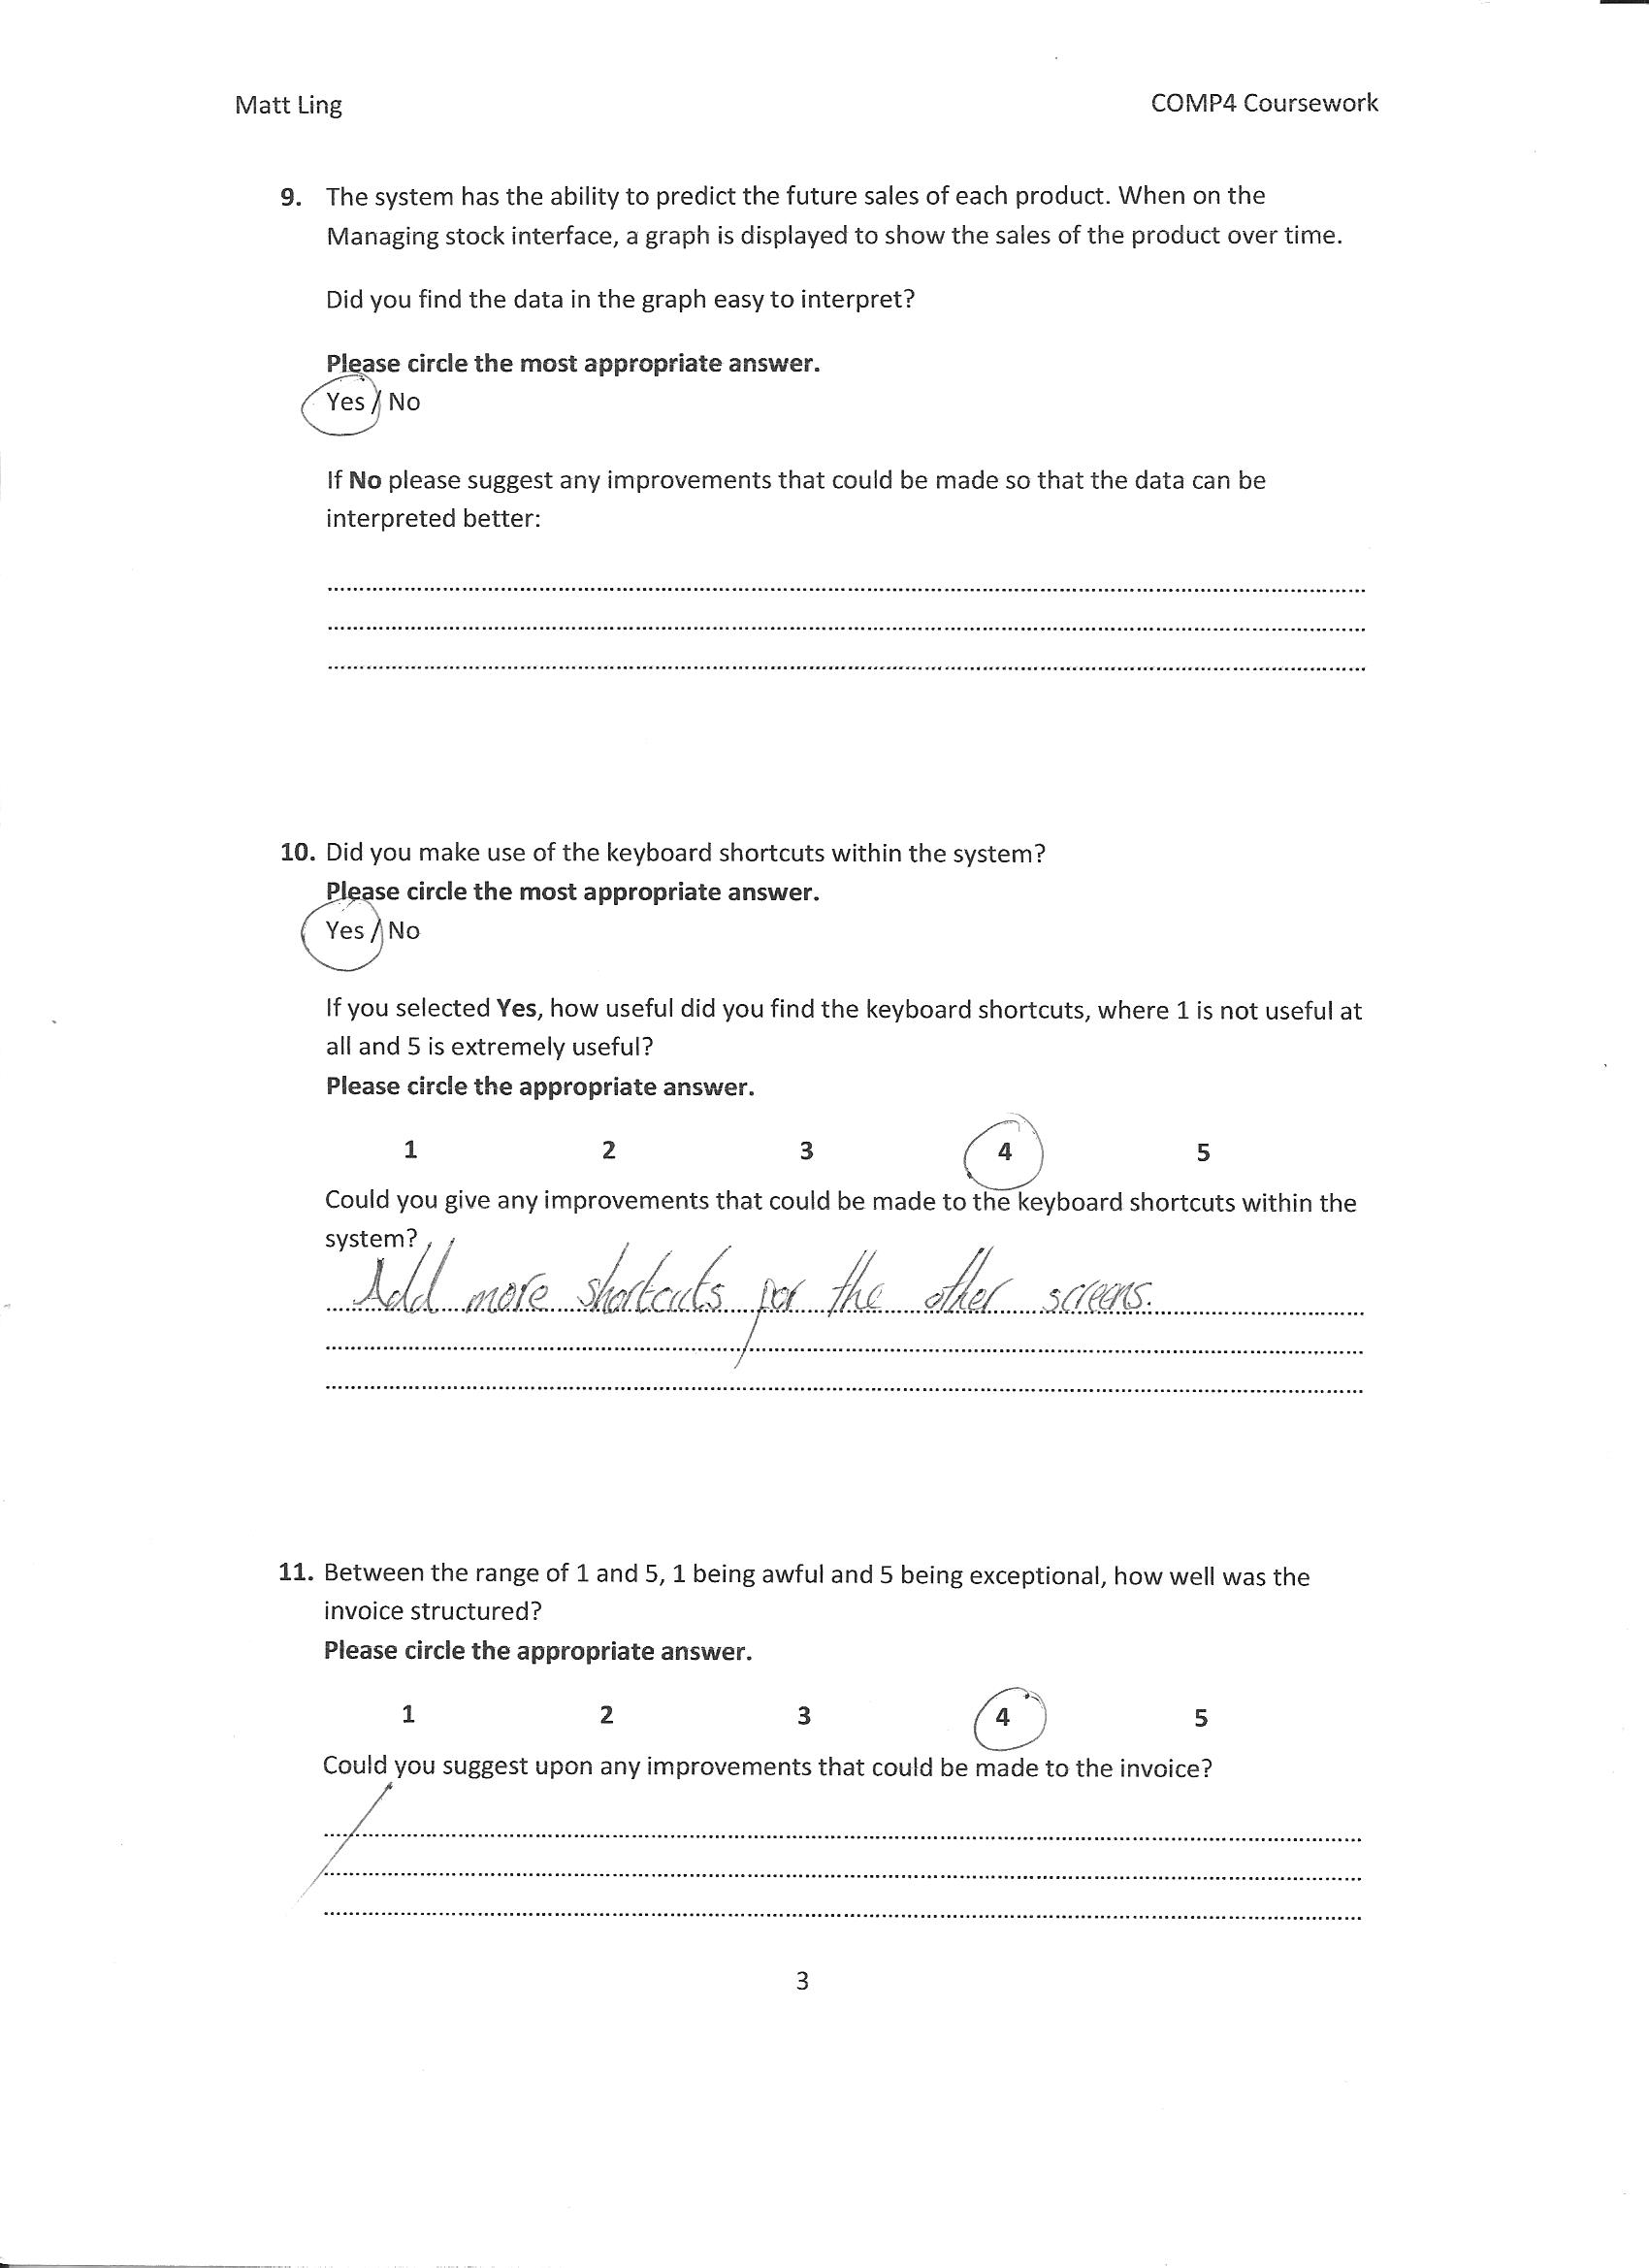 Matt Ling COMP4 Coursework
9. The system has the ability to predict the future sales of each product. When on the
Managing stock interface, a graph is displayed to show the sales of the product over time.
Did you find the data in the graph easy to interpret?
Please circle the most appropriate answer.
Yes / No
If No please suggest any improvements that could be made so that the data can be
interpreted better:
10. Did you make use of the keyboard shortcuts within the system?
Please circle the most appropriate answer.
Yes / No
If you selected Yes, how useful did you find the keyboard shortcuts, where 1 is not useful at
all and 5 is extremely useful?
Please circle the appropriate answer.
1 2 3 4 5
Could you give any improvements that could be made to the keyboard shortcuts within the
system?
Add more shortcuts for the other screens.
11. Between the range of 1 and 5, 1 being awful and 5 being exceptional, how well was the
invoice structured?
Please circle the appropriate answer.
1 2 3 4 5
Could you suggest upon any improvements that could be made to the invoice?
3